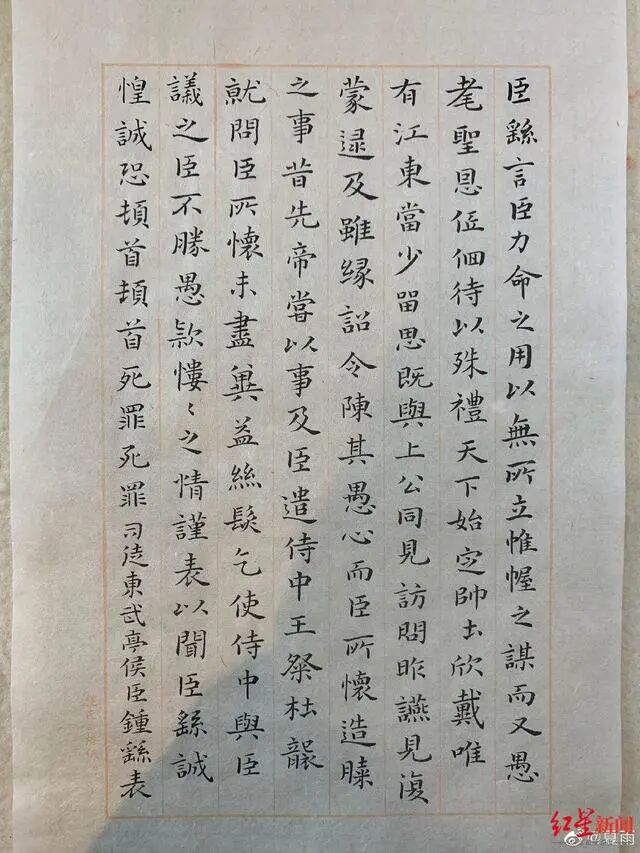 臣繇言臣力命之用以無所立惟幄之謀而又愚
耄聖恩低佪待以殊禮天下始定帥土欣戴唯
有江東當少留思既與上公同見訪問昨讌見復
蒙逮及雖緣詔令陳其愚心而臣所懷造膝
之事昔先帝嘗以事及臣遣侍中王粲杜襲
就問臣所懷未盡冀益絲髮乞使侍中與臣
議之臣不勝愚款慺〻之情謹表以聞臣繇誠
惶誠恐頓首頓首死罪死罪司徒東武亭侯臣鍾繇表
红星新闻
@夏雨